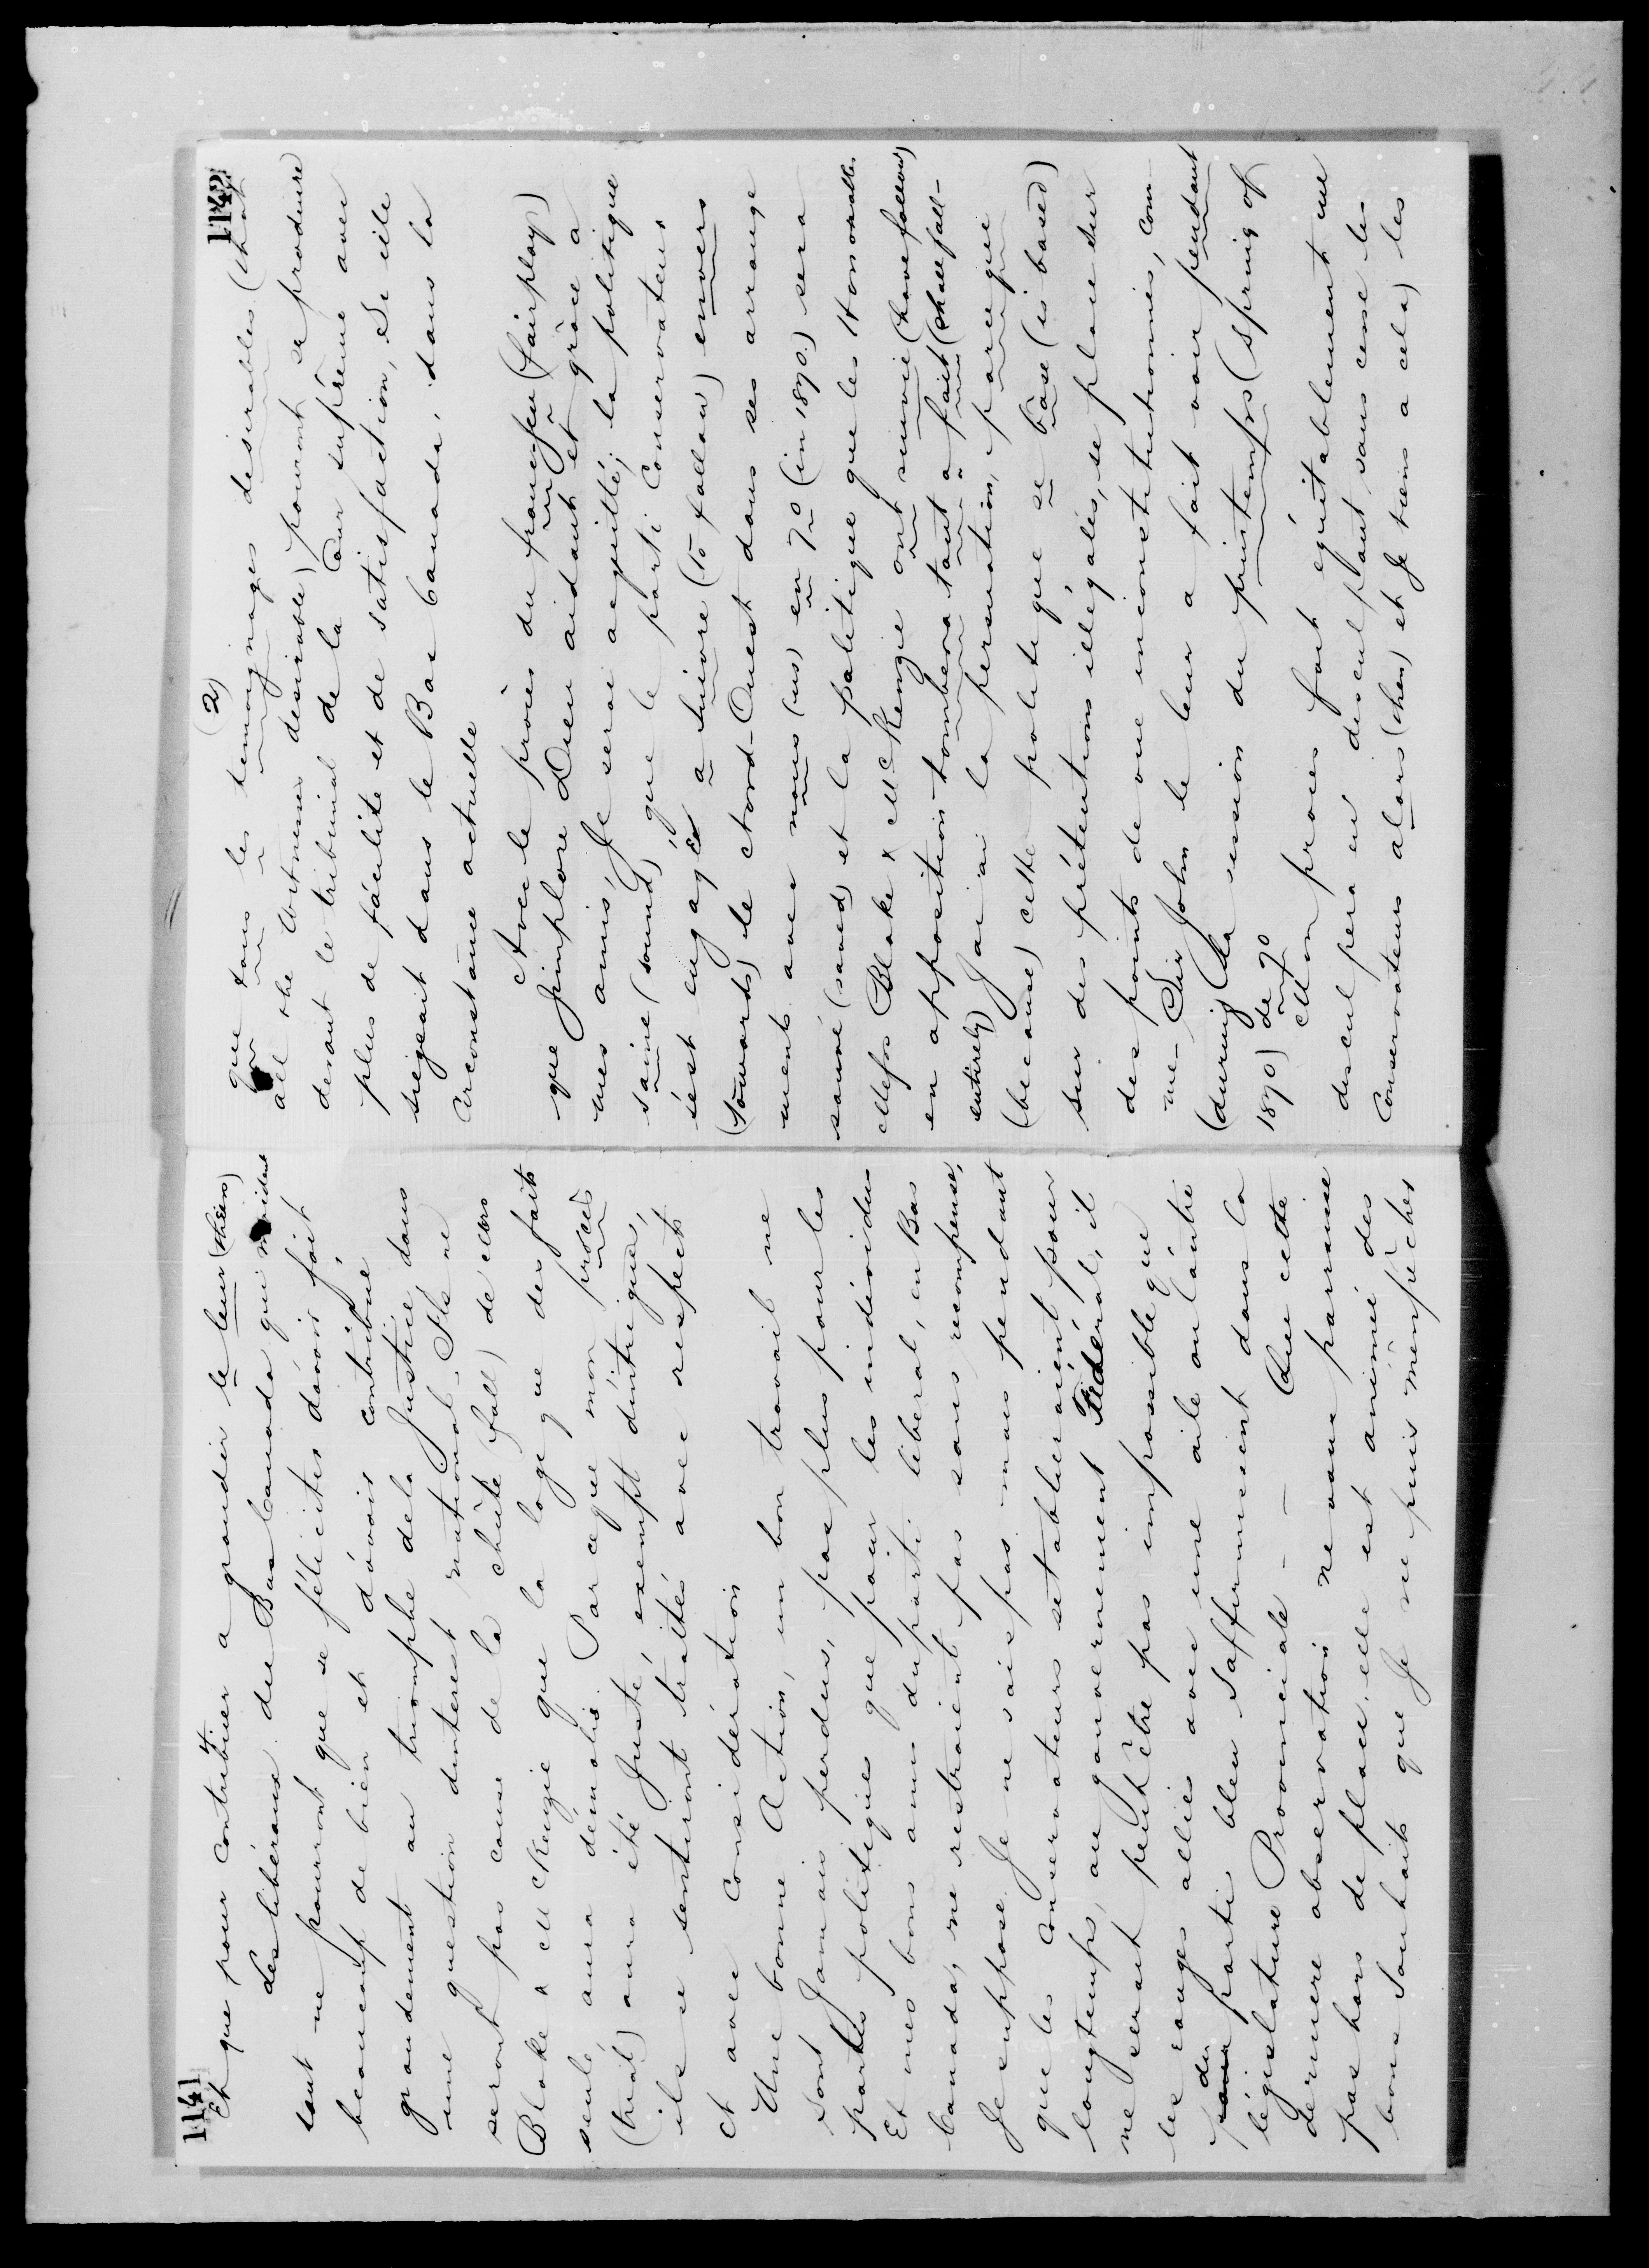 1141
4.
Et que pour contribuer a grandir le leur (theirs)
Les libéraux du Bas Canada qui
tout ne pourront que se féliciter d'avoir fait
beaucoup de bien et d'avoir contribué
grandement au triomphe de la Justice dans
une question d'interest national. Ils ne
seront pas cause de la chûte (fall) de Mrs
Blake & McKenzie que la logique des faits
seule aura démolis. Par ce que mon procès
(trial) aura été Juste, exempt d'intrigues,
ils se sentiront traités avec respect
et avec considération
Une bonne Action, un bon travail ne
sont Jamais perdus, pas plus pour les
partis politiques que pour les individus
Et mes bons amis du parti liberal, en Bas
Canada, ne resteraient pas sans recompense,
Je suppose. Je ne sais pas mais pendant
que les Conservateurs s'etablieraient pour
longtemps, au gouvernement Fédéral, il
ne serait peut être pas impossible que
les rouges alliés avec une aile ou l'autre
du parti bleu s'affermissent dans la
législature Provinciale — — Que cette
derniere observation ne vous parraisse
pas hors de place. elle est animée des
bons souhaits que Je ne puis m'empêcher
1142
(2)
que tous les temoignages desirables (that
all the testimonies desirable) pourront se produire
devant le tribunal de la Cour suprême avec
plus de facilité et de satisfaction, Si elle
siegeait dans le Bas Canada, dans la
circonstance actuelle
Avec le procès du franc jeu (fair play)
que J'implore Dieu aidant et grâce à
mes amis, Je serai acquitté; la politique
saine (sound) que le parti Conservateur
s'est engagé a suivre (to follow) envers
(towards) le Nord-Ouest dans ses arrange
ments avec nous (us) en 70 (in 1870.) sera
sauvé (saved) et la politique que les Honorables
Messrs Blake & McKenzie ont suivie (have followed)
en opposition tombera tout a fait (shall fall
entirely) J'ai la persuation, parce que
(because) cette politique se base (is based)
sur des prétentions illégales, se place sur
des points de vue inconstitutionnés, com-
me Sir John le leur a fait voir pendant
(during) la session du printemps (spring of
1870) de 70
Mon procès fait équitablement me
desculpera en desculpant sans cesse les
Conservateurs alors (then) et Je tiens a cela) les